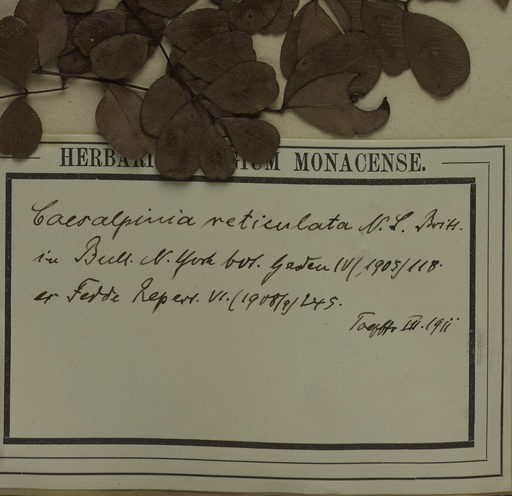 HERBARI GIUM MONACENSE.
Caesalpinia reticulata N. L. Britt.
in Bull. N. York bot. Garden IV (1905) 118.
ex Fedde Repert. VI. (1908/9) 245.
III. 1911